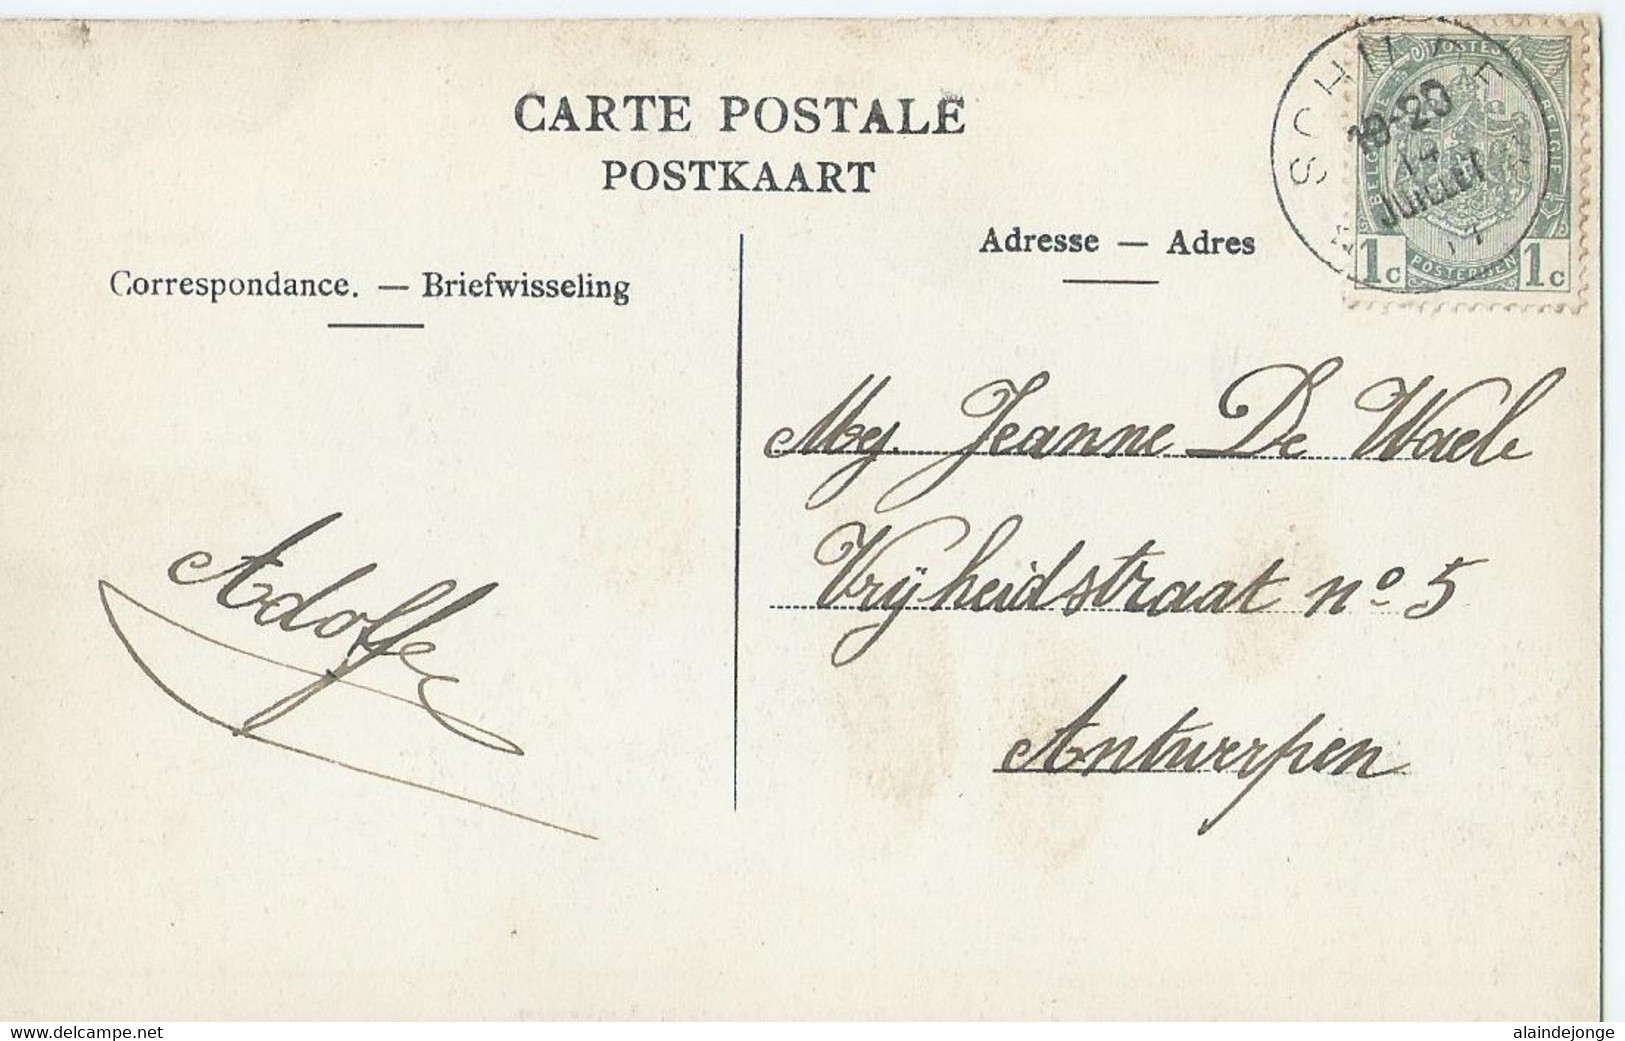 CARTE POSTALE
POSTKAART
Correspondance. — Briefwisseling
Adresse — Adres
SCHILDE
10-20
14
JUILLET
POSTES
BELGIQUE
BELGIE
POSTERIJEN
1c 1c
Mej. Jeanne De Waele
Vrijheidstraat nº 5
Antwerpen
Adolf
www.delcampe.net
alaindejonge